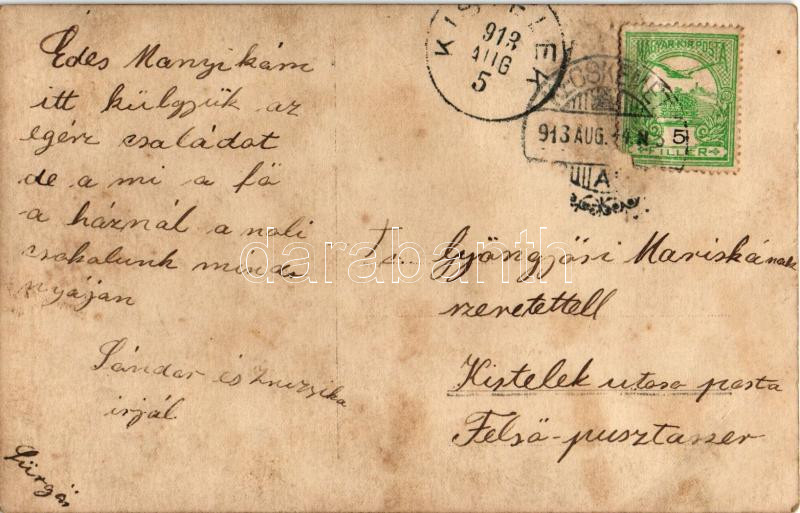 Édes Manyikám
itt külgyük az
egész családot
de a mi a fő
a háznál a noli
csokalunk minda
nyáján
Sándor és Zsuzsika
irjál
Sürgős
KISTELEK
913
AUG
5
KECSKEMÉT
913 AUG. 4 N
A
MAGYAR KIR. POSTA
5
FILLER
T. c.
Gyöngyösi Mariskának
szeretettell
Kistelek utosa posta
Felső-pusztaszer
darabanth